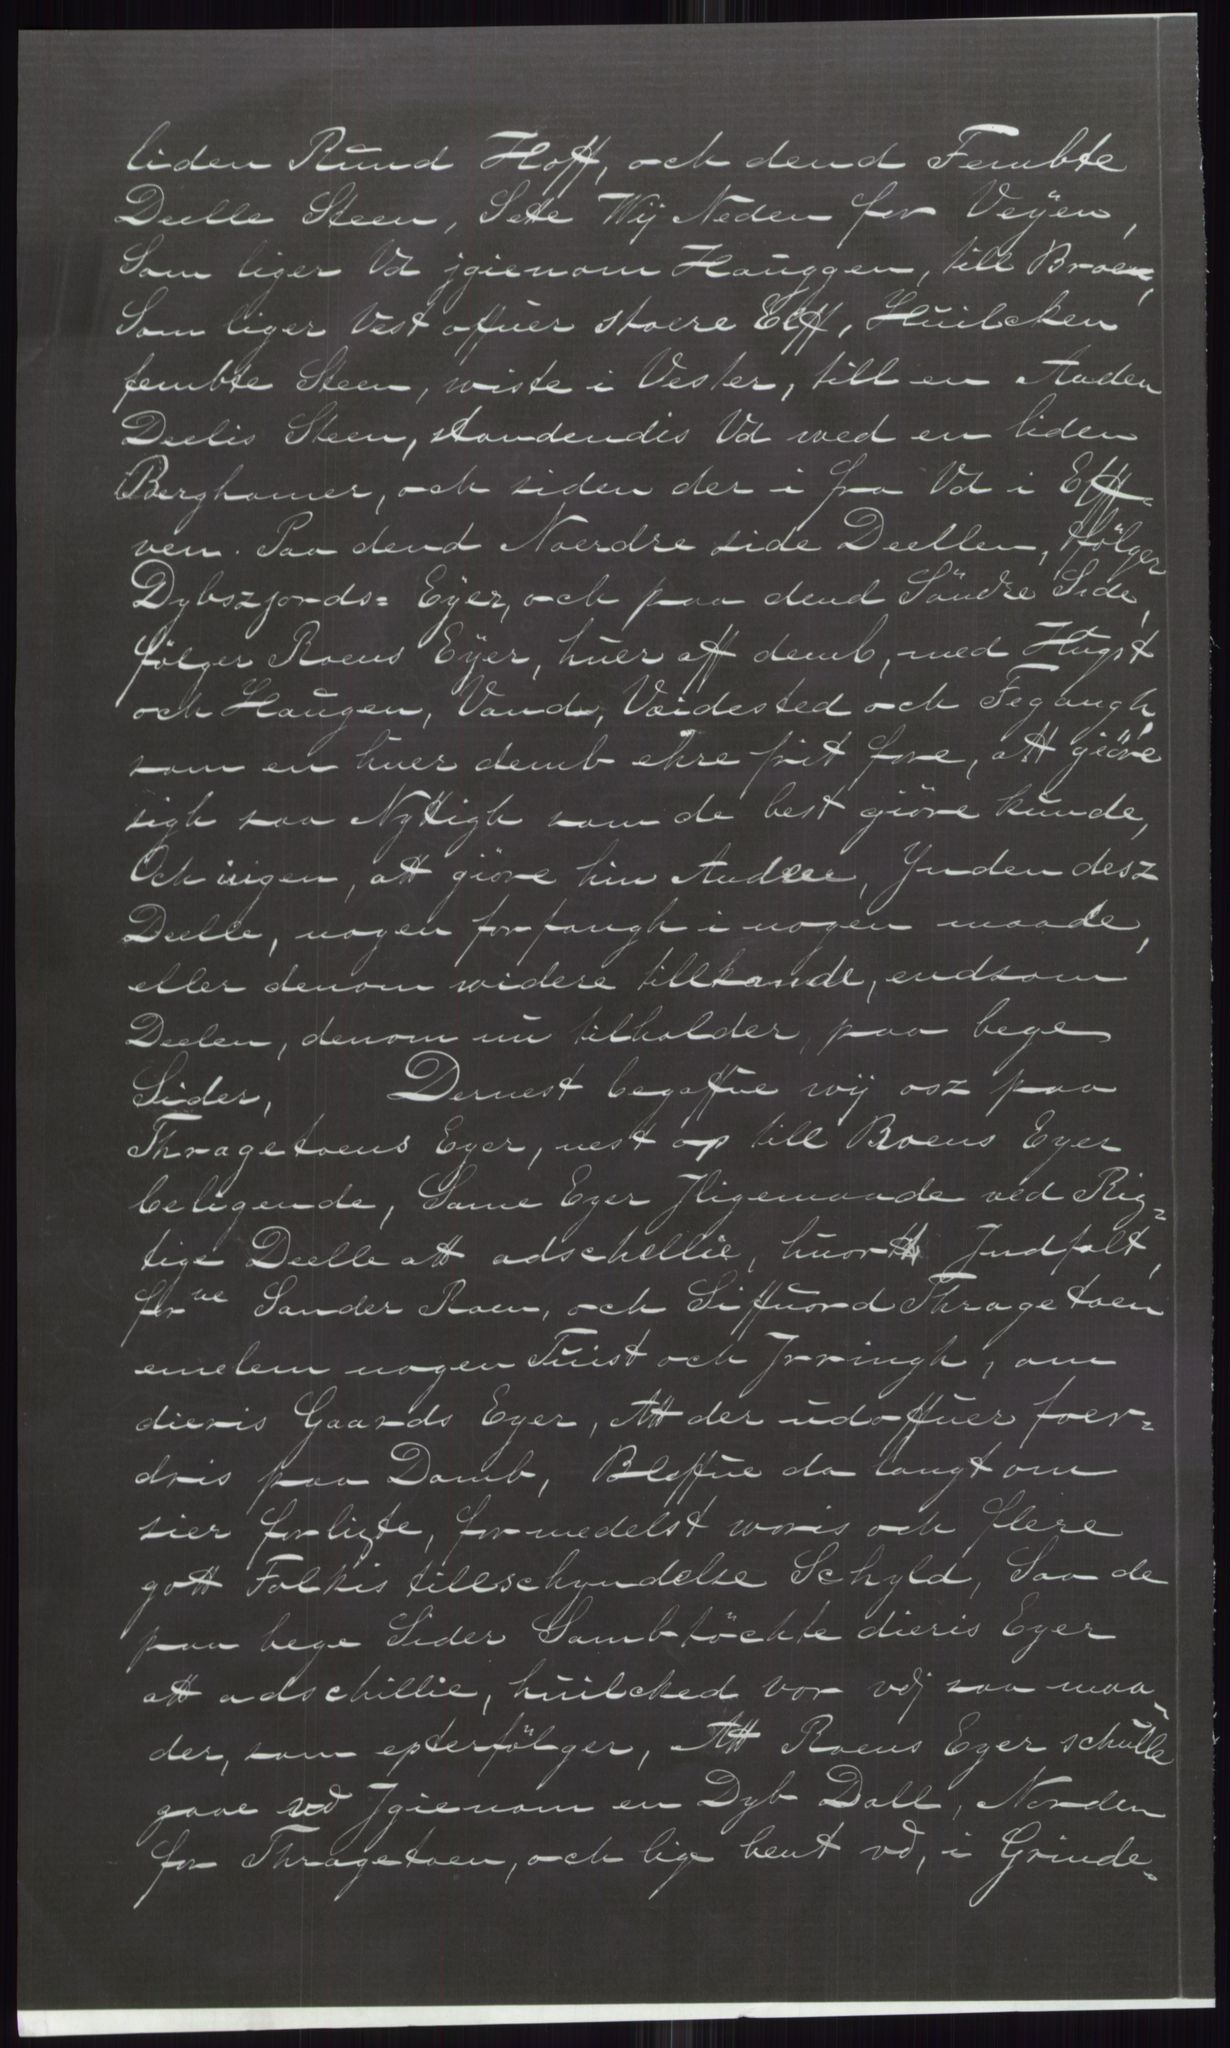 liden Rŭnd Hoff, och dend Fembte
Deelle Steen, Sete Wij Neden for Veÿen,
Som liger Vd jgienom Haŭggen, till Broen,
Som liger Vest offuer stoere Elff, Hŭilcken
fembte Steen, wiste i Vester, till en Anden
Deelis Steen, standendis Vd wed en liden
Berghamer, och siden der i fra Vd i Elff-
ven. Paa dend Noerdre side Deellen, følger
Dybszjords= Eÿer, och paa dend Söndre Side,
fölger Roens Eÿer, hŭer aff demb, med Hŭgst
och Haŭgen, Vand, Veidested och Fegangh,
som en hŭer demb ehre frit fore, att giöre
sigh saa Nyttigh som de best giöre kŭnde,
Och ingen, att giöre hin Anden, Jnden desz
Deelle, nogen forfangh i nogen maade,
eller denom widere tillkande, endsom
Deelen, denom nŭ tilholder, paa bege
Sider, Dernest begaffue wij osz paa
Thragetoens Eyer, nest op till Roens Eyer
beligende, Same Eyer Jligemaade ved Rig-
tige Deelle att adschellie, hŭortt Jndfalt,
for<sup>ne</sup> Sander Roen, och Siffuord Thragetoen
emelem nogen Tŭist och Jrringh, om
dieris Gaards Eyer, Att der ŭdoffŭer foer-
dris paa Domb, Bleffŭe da langt om
sier forligte, formedelst woris och flere
gott Folkis tillschyndelse Schyld, Saa de
paa bege Sider Sambtöckte dieris Eyer
att adschillie, hŭilcked vor vdj saa maa-
der, som epterfölger, Att Roens Eyer schŭlle
gaae vd Jgienom en Dyb Dall, Norden
for Thragetoen, och lige bent vd, i Grinde-